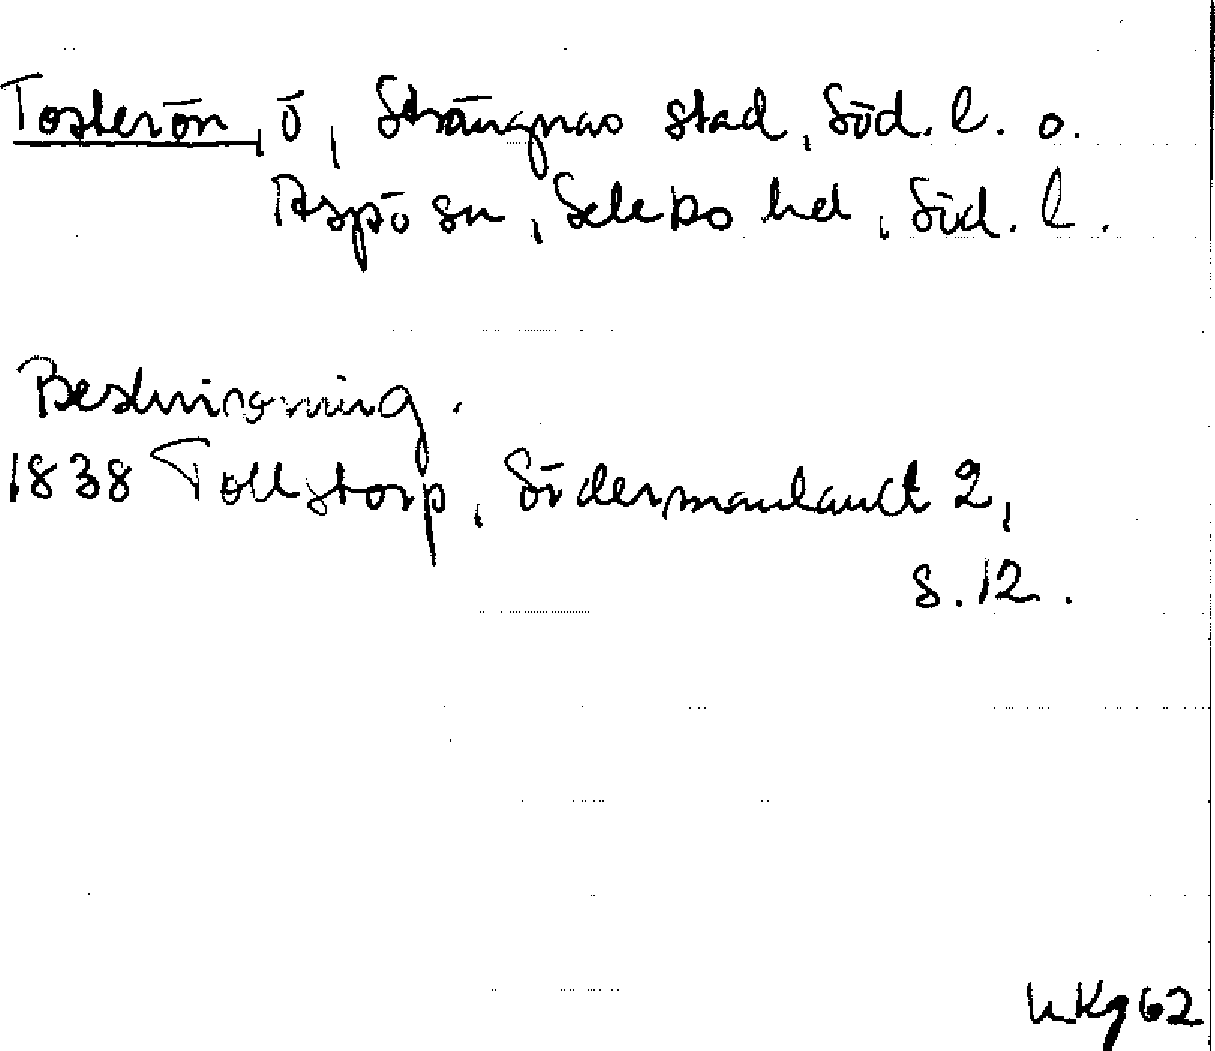 Tosterön, ö, Strängnäs stad, Söd. l. o.
Aspö sn, Selebo hd, Söd. l.
Beskrivning.
1838 Tollstorp, Södermanland 2,
s. 12.